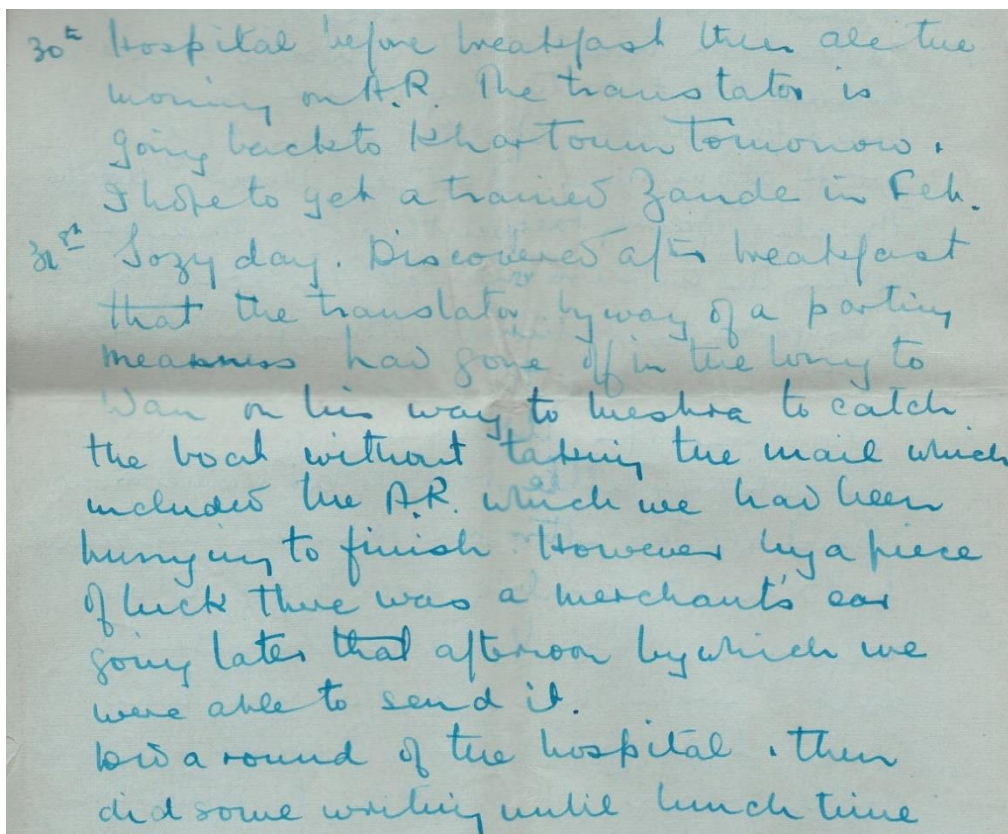 30th Hospital before breakfast then all the
morning on A.R. The translator is
going back to Khartoum tomorrow.
I hope to get a trained Zande in Feb.
31st Lozy day. Discovered after breakfast
that the translator by way of a parting
meanness had gone off in the lorry to
Wau on his way to Meshra to catch
the boat without taking the mail which
included the A.R. which we had been
hurrying to finish. However by a piece
of luck there was a merchant's car
going later that afternoon by which we
were able to send it.
Did a round of the hospital. Then
did some writing until lunch time